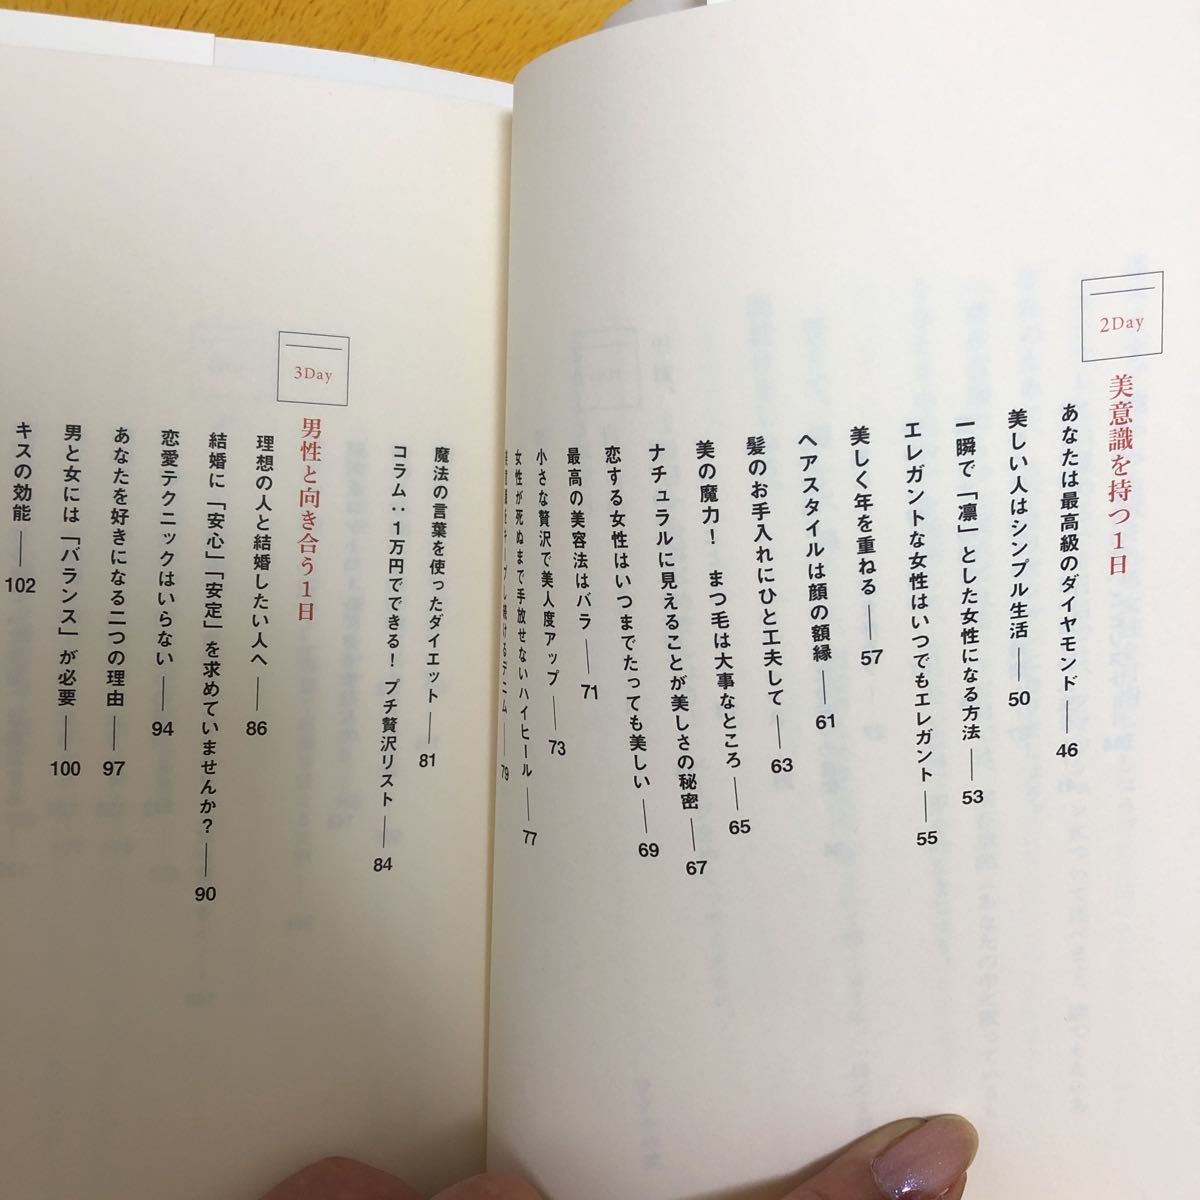 2Day
美意識を持つ1日
あなたは最高級のダイヤモンド —— 46
美しい人はシンプル生活 —— 50
一瞬で「凛」とした女性になる方法 —— 53
エレガントな女性はいつでもエレガント —— 55
美しく年を重ねる —— 57
ヘアスタイルは顔の額縁 —— 61
髪のお手入れにひと工夫して —— 63
美の魔力！ まつ毛は大事なところ —— 65
ナチュラルに見えることが美しさの秘密 —— 67
恋する女性はいつまでたっても美しい —— 69
最高の美容法はバラ —— 71
小さな贅沢で美人度アップ —— 73
女性が死ぬまで手放せないハイヒール —— 77
デニム —— 79
魔法の言葉を使ったダイエット —— 81
コラム：1万円でできる！プチ贅沢リスト —— 84
3Day
男性と向き合う1日
理想の人と結婚したい人へ —— 86
結婚に「安心」「安定」を求めていませんか？ —— 90
恋愛テクニックはいらない —— 94
あなたを好きになる二つの理由 —— 97
男と女には「バランス」が必要 —— 100
キスの効能 —— 102